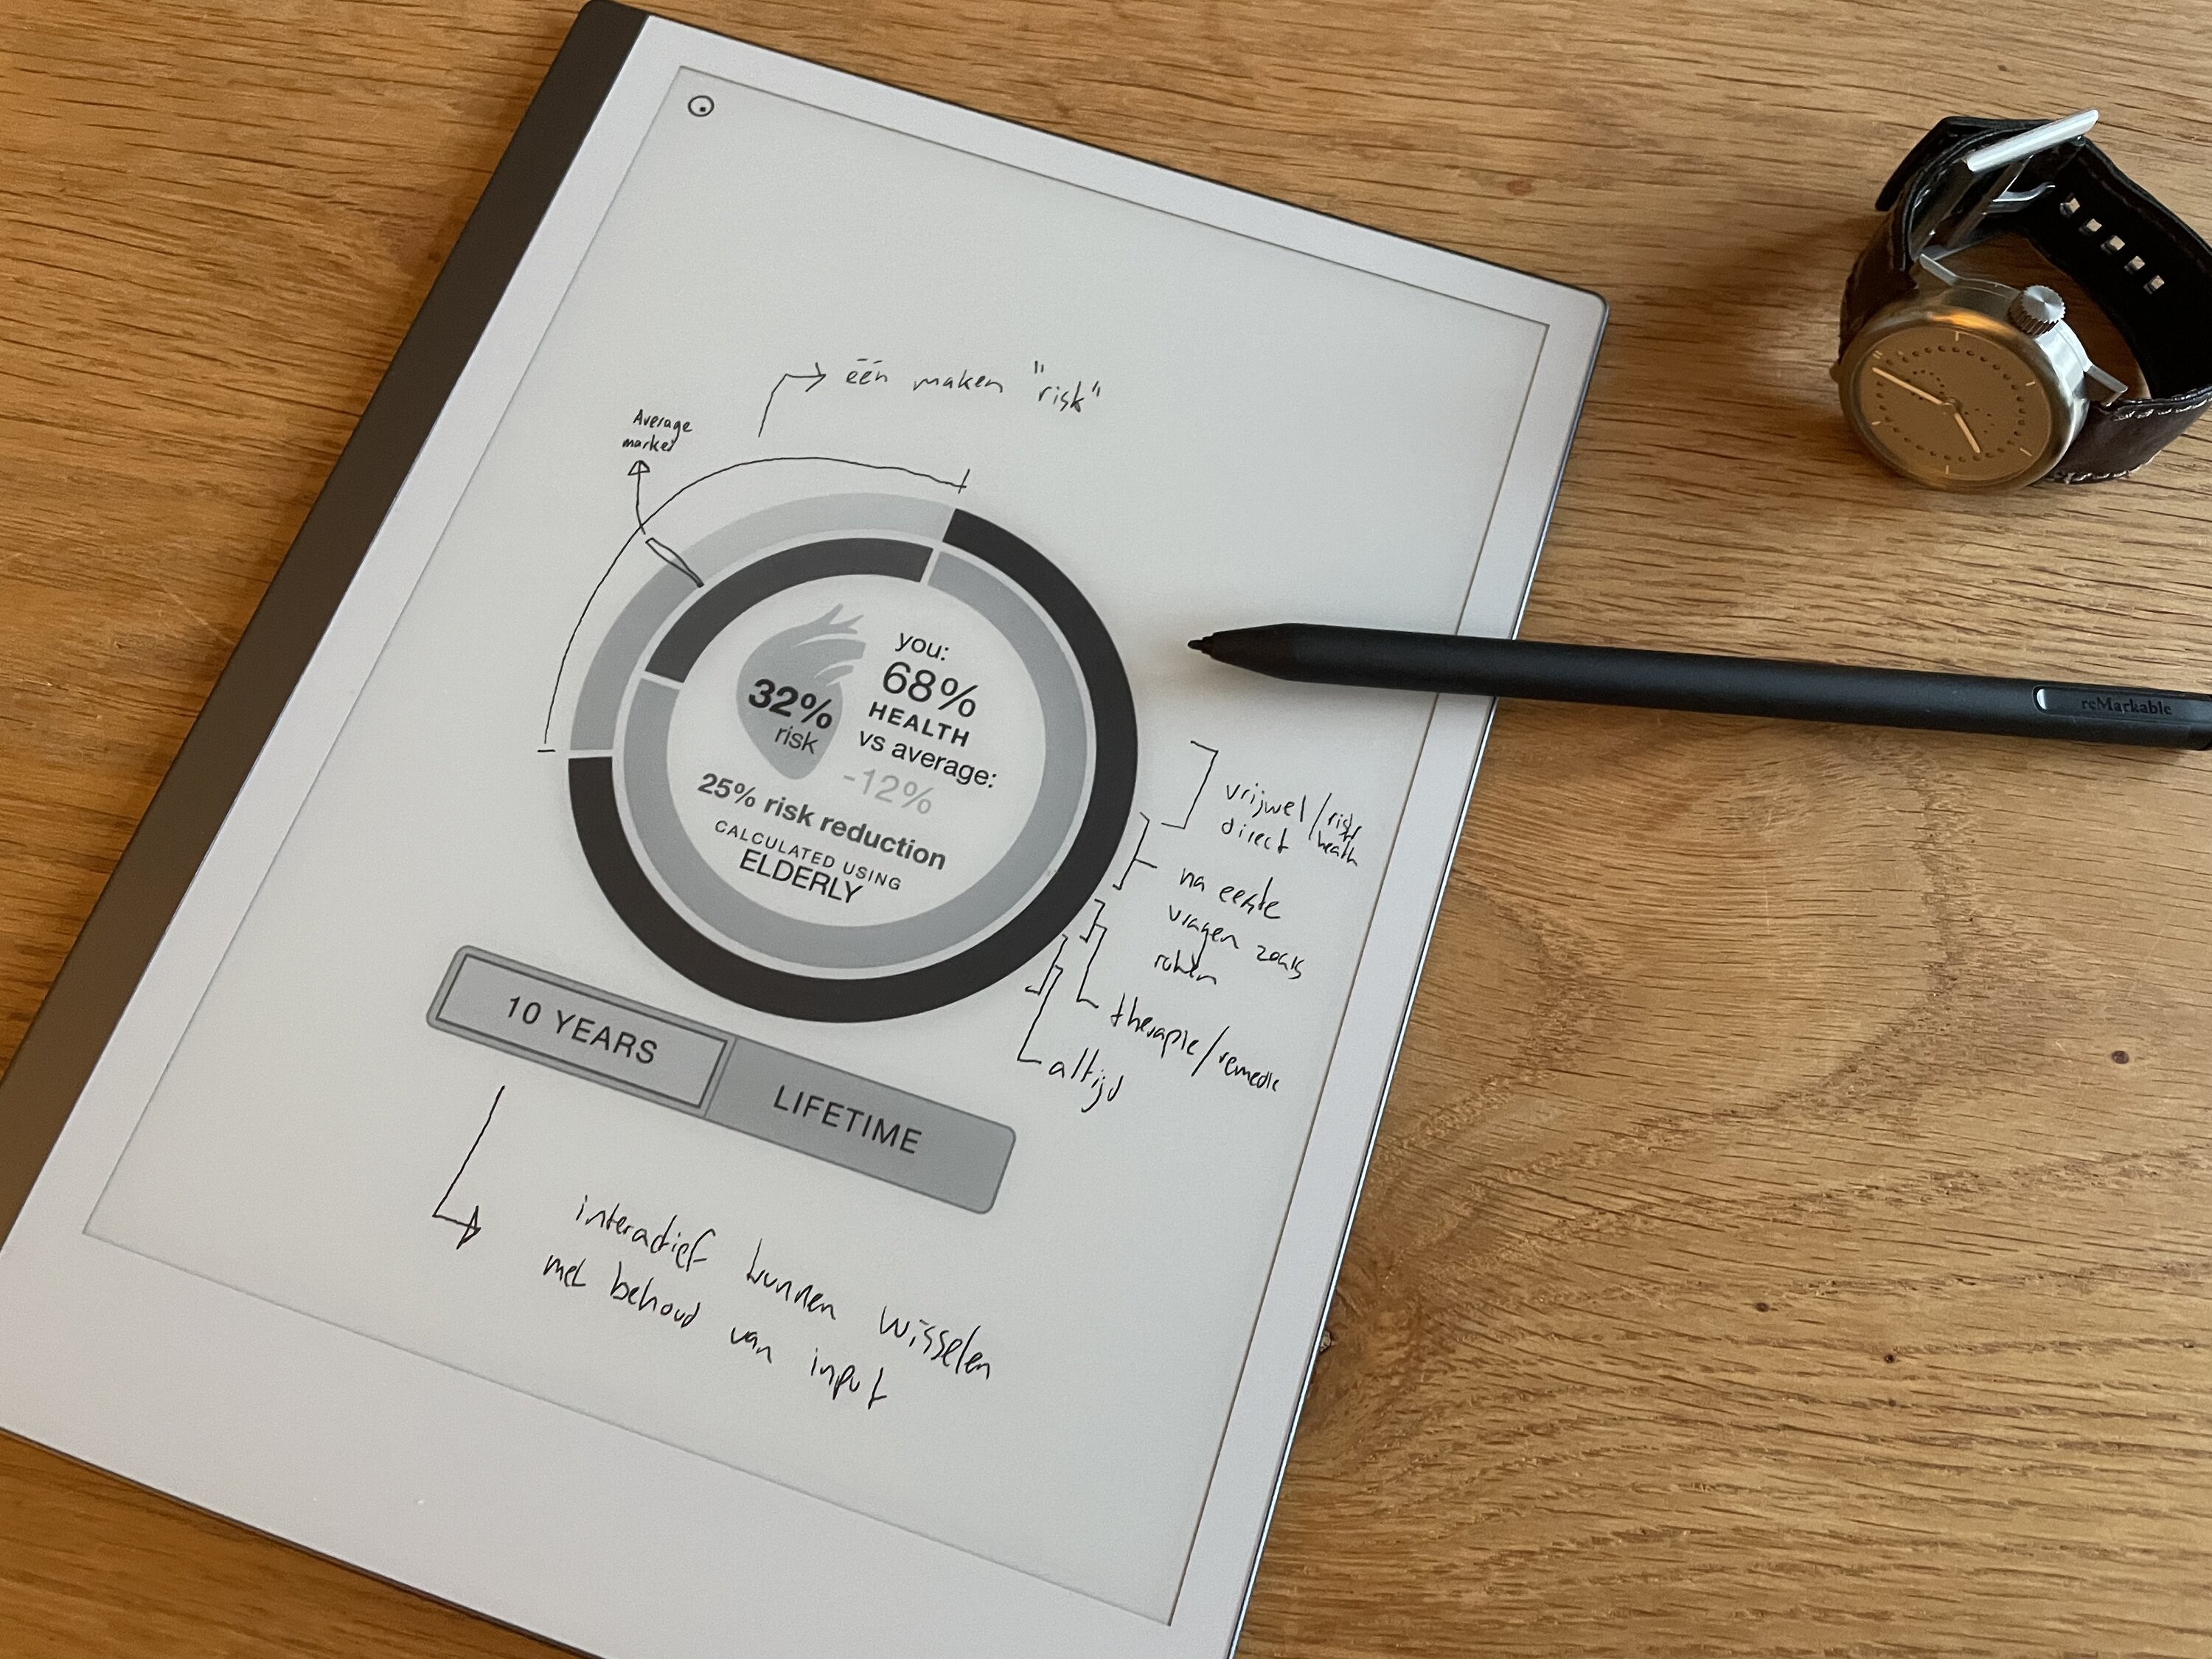 één maken "risk"
Average
marker
you:
68%
HEALTH
vs average:
-12%
32%
risk
25% risk reduction
CALCULATED USING
ELDERLY
reMarkable
vrijwel / risk
direct health
na eerste
vragen zoals
roken
therapie/remedie
altijd
10 YEARS
LIFETIME
interactief kunnen wisselen
met behoud van input